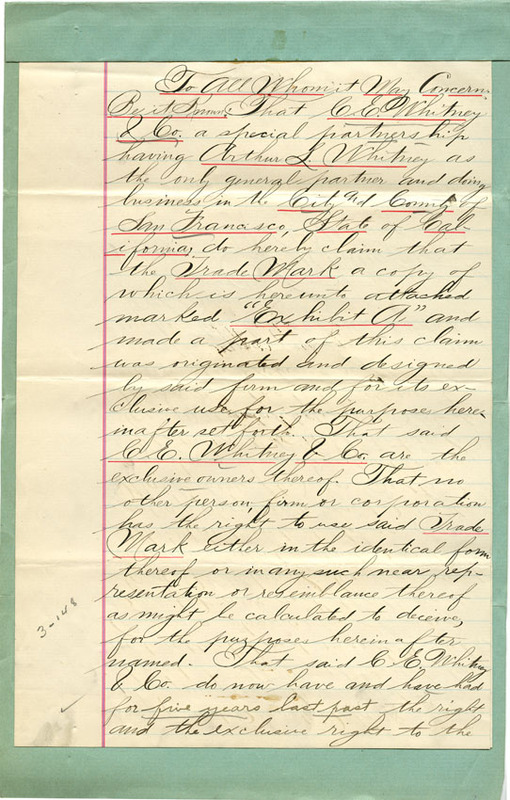 To All Whom it May Concern.
Be it Known: That C. E. Whitney
& Co. a special partnership
having Arthur L. Whitney as
the only general partner and doing
business in the City and County of
San Francisco, State of Cal-
ifornia, do hereby claim that
the Trade Mark a copy of
which is hereunto attached
marked "Exhibit A" and
made a part of this claim
was originated and designed
by said firm and for its ex-
clusive use for the purposes here-
inafter set forth. That said
C. E. Whitney & Co. are the
exclusive owners thereof. That no
other person, firm or corporation
has the right to use said Trade
Mark either in the identical form
thereof or in any such near rep-
resentation or resemblance thereof
as might be calculated to deceive,
for the purposes hereinafter
named. That said C. E. Whitney
& Co. do now have and have had
for five years last past the right
and the exclusive right to the
3-148